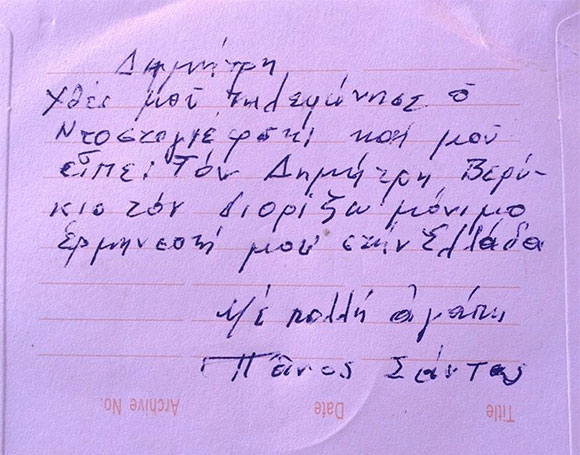 Δημήτρη
Χθές μοῦ τηλεφώνησε ὁ
Ντοσταγιέφσκι καί μοῦ
εἶπε: Τόν Δημήτρη Βερύ-
κιο τόν διορίζω μόνιμο
ἑρμηνευτή μου στήν Ελλάδα
Μέ πολλή ἀγάπη
Πᾶνος Σάντας
Title Date Archive No.